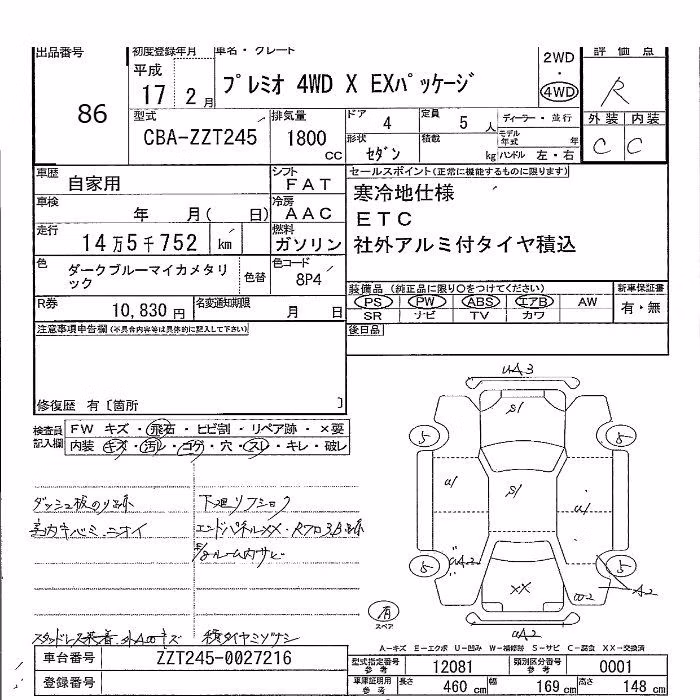 出品番号 初度登録年月 車名・グレード 2WD 評価点
86 平成 17 2月 プレミオ 4WD X EXパッケージ ・ 4WD R
型式 CBA-ZZT245 排気量 1800 cc ドア 4 定員 5 人 ディーラー・並行 外装 内装
形状 セダン 積載 kg モデル年式 年 ハンドル 左・右 C C
車歴 自家用 シフト FAT セールスポイント(正常に機能するものに限ります)
車検 年 月( 日) 冷房 AAC 寒冷地仕様
ETC
走行 14万5千752 km 燃料 ガソリン 社外アルミ付タイヤ積込
色 ダークブルーマイカメタリック 色替 色コード 8P4
装備品 (純正品に限り○をつけてください) 新車保証書
R券 10,830円 名変通知期限 月 日 PS PW ABS エアB AW 有・無
SR ナビ TV カワ
注意事項申告欄(不具合内容等は具体的に記入して下さい) 後日品
修復歴 有〔箇所 〕
検査員記入欄 FW キズ・飛石・ヒビ割・リペア跡・×要
内装 キズ・汚レ・コゲ・穴・スレ・キレ・破レ
UA3
S1
5 5
U1 S1 U1
5 5
XX
A2
UA2
ダッシュ板
下廻り
エンドパネルXX
ルーム内サビ
有
スペア
A-キズ E-エクボ U-凹み W-補修跡 S-サビ C-腐食 XX-交換済
車台番号 ZZT245-0027216 型式指定番号 参考 12081 類別区分番号 参考 0001
登録番号 車庫証明用 参考 長さ 460 cm 幅 169 cm 高さ 148 cm